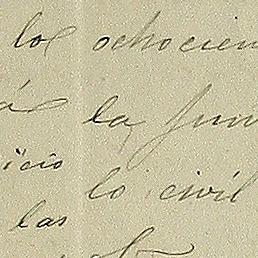 los ochocien
á la Jun
icio lo civil
las